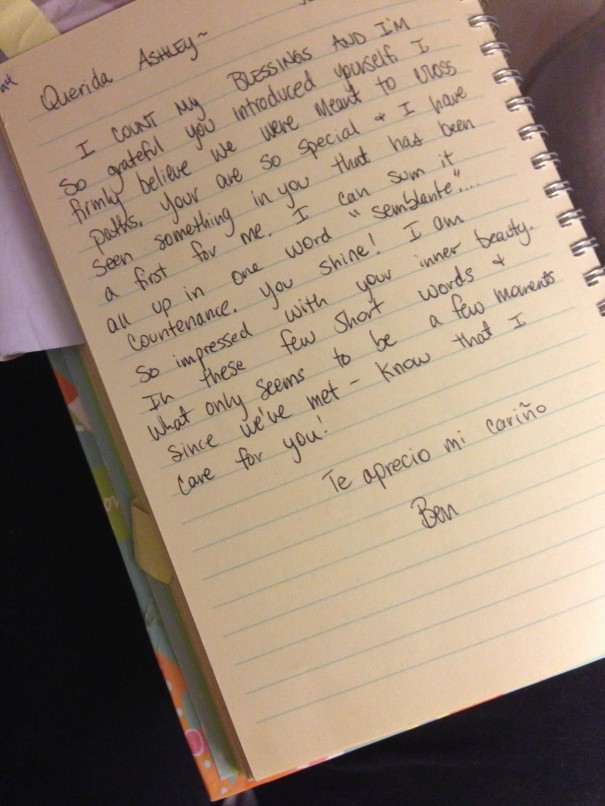 Querida ASHLEY~
I COUNT MY BLESSINGS AND I'M
So grateful you introduced yourself. I
firmly believe we were meant to cross
paths. Your are so special & I have
seen something in you that has been
a first for me. I can sum it
all up in one word "semblante"....
Countenance. You shine! I am
so impressed with your inner beauty.
In these few short words &
what only seems to be a few moments
since we've met - know that I
care for you!
Te aprecio mi cariño
Ben